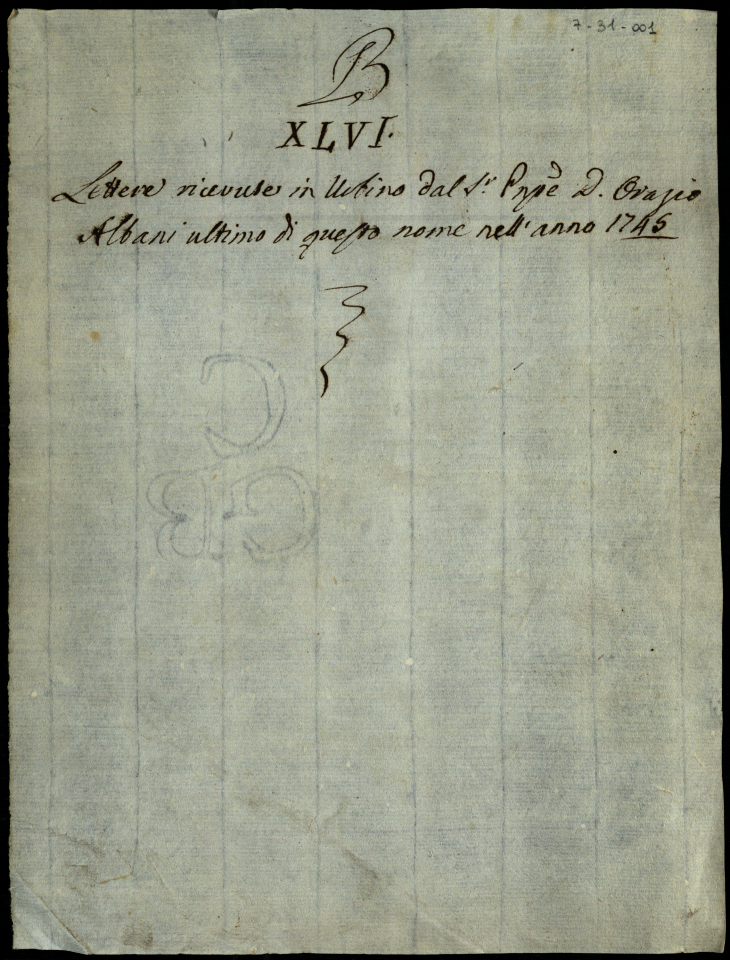 7-31-001
B
XLVI.
Lettere ricevute in Urbino dal S.r Pnpẽ D. Orazio
Albani ultimo di questo nome nell'anno 1745